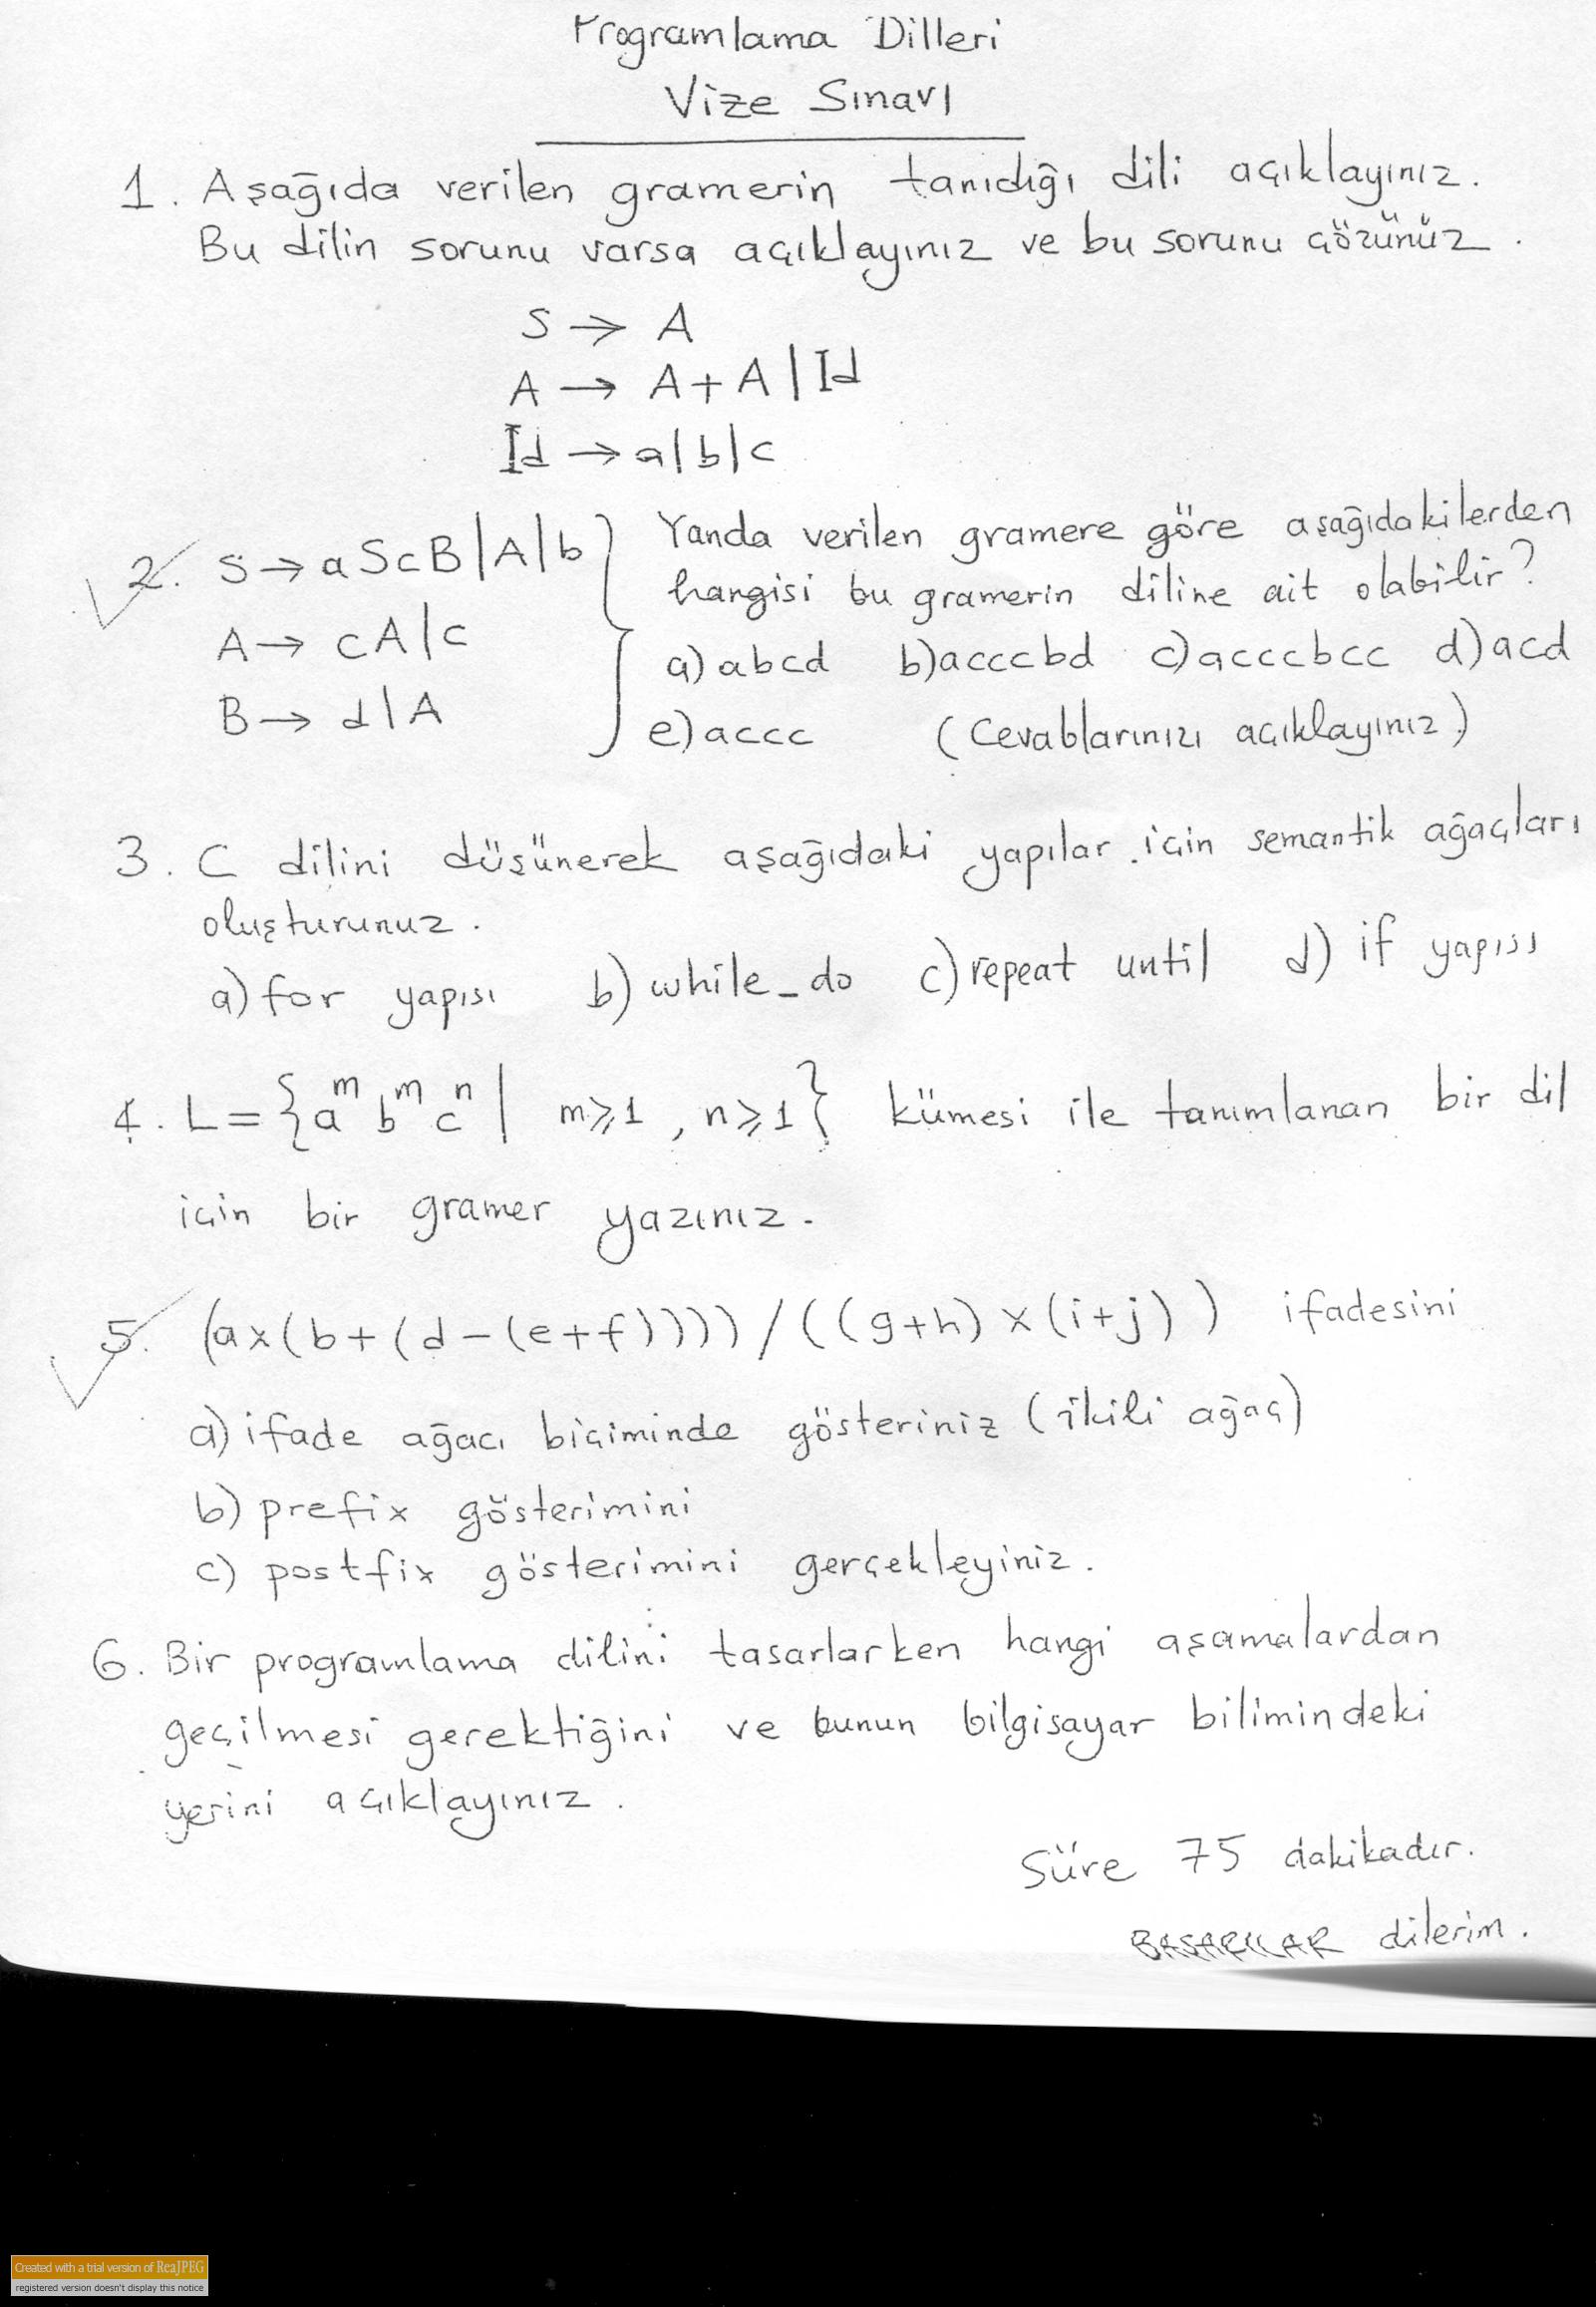 Programlama Dilleri
Vize Sınavı
1. Aşağıda verilen gramerin tanıdığı dili açıklayınız.
Bu dilin sorunu varsa açıklayınız ve bu sorunu çözünüz.
S → A
A → A + A | Id
Id → a | b | c
2. S → aScB | A | b } Yanda verilen gramere göre aşağıdakilerden
hangisi bu gramerin diline ait olabilir?
A → cA | c
a) abcd b) acccbd c) acccbcc d) acd
B → d | A
e) accc (Cevablarınızı açıklayınız)
3. C dilini düşünerek aşağıdaki yapılar için semantik ağaçları
oluşturunuz.
a) for yapısı b) while_do c) repeat until d) if yapısı
4. L = {a^m b^m c^n | m ≥ 1, n ≥ 1} kümesi ile tanımlanan bir dil
için bir gramer yazınız.
5. (ax(b+(d-(e+f))))/((g+h)x(i+j)) ifadesini
a) ifade ağacı biçiminde gösteriniz (ikili ağaç)
b) prefix gösterimini
c) postfix gösterimini gerçekleyiniz.
6. Bir programlama dilini tasarlarken hangi aşamalardan
geçilmesi gerektiğini ve bunun bilgisayar bilimindeki
yerini açıklayınız.
Süre 75 dakikadır.
BAŞARILAR dilerim.
Created with a trial version of ReaJPEG
registered version doesn't display this notice